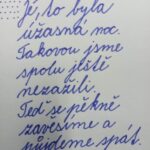 Jé, to byla
úžasná noc.
Takovou jsme
spolu ještě
nezažili.
Teď se pěkně
zavěsíme a
půjdeme spát.